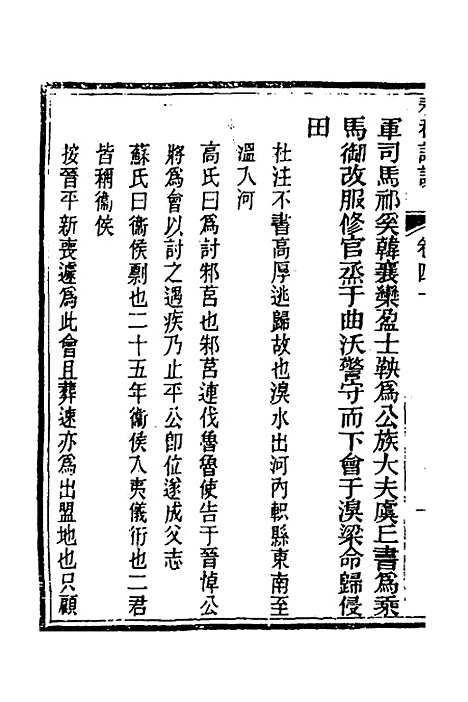 卷四十
軍司馬祁奚韓襄欒盈士鞅爲公族大夫虞丘書爲乘
馬御改服修官烝于曲沃警守而下會于溴梁命歸侵
田
杜注不書高厚逃歸故也溴水出河內軹縣東南至
溫入河
高氏曰爲討邾莒也邾莒連伐魯魯使告于晉悼公
將爲會以討之遇疾乃止平公卽位遂成父志
蘇氏曰衞侯剽也二十五年衞侯入夷儀衎也二君
皆稱衞侯
按晉平新喪遽爲此會且葬速亦爲出盟地也只顧